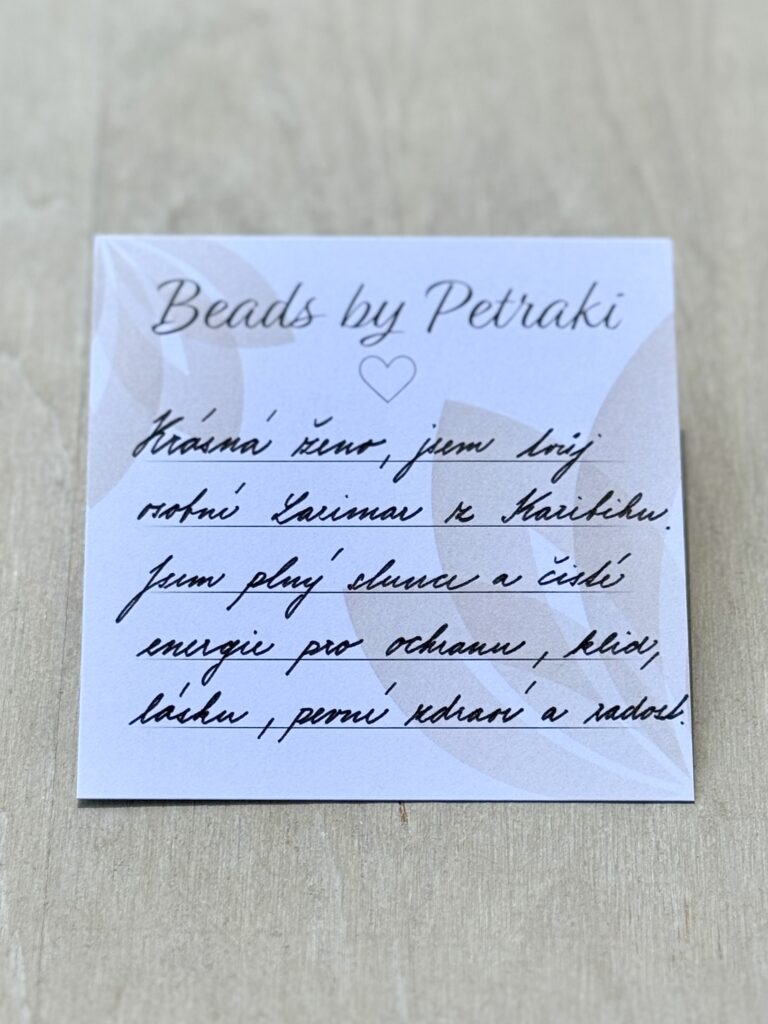 Beads by Petraki
Krásná ženo, jsem tvůj
osobní Larimar z Karibiku.
Jsem plný slunce a čisté
energie pro ochranu, klid,
lásku, pevné zdraví a radost.